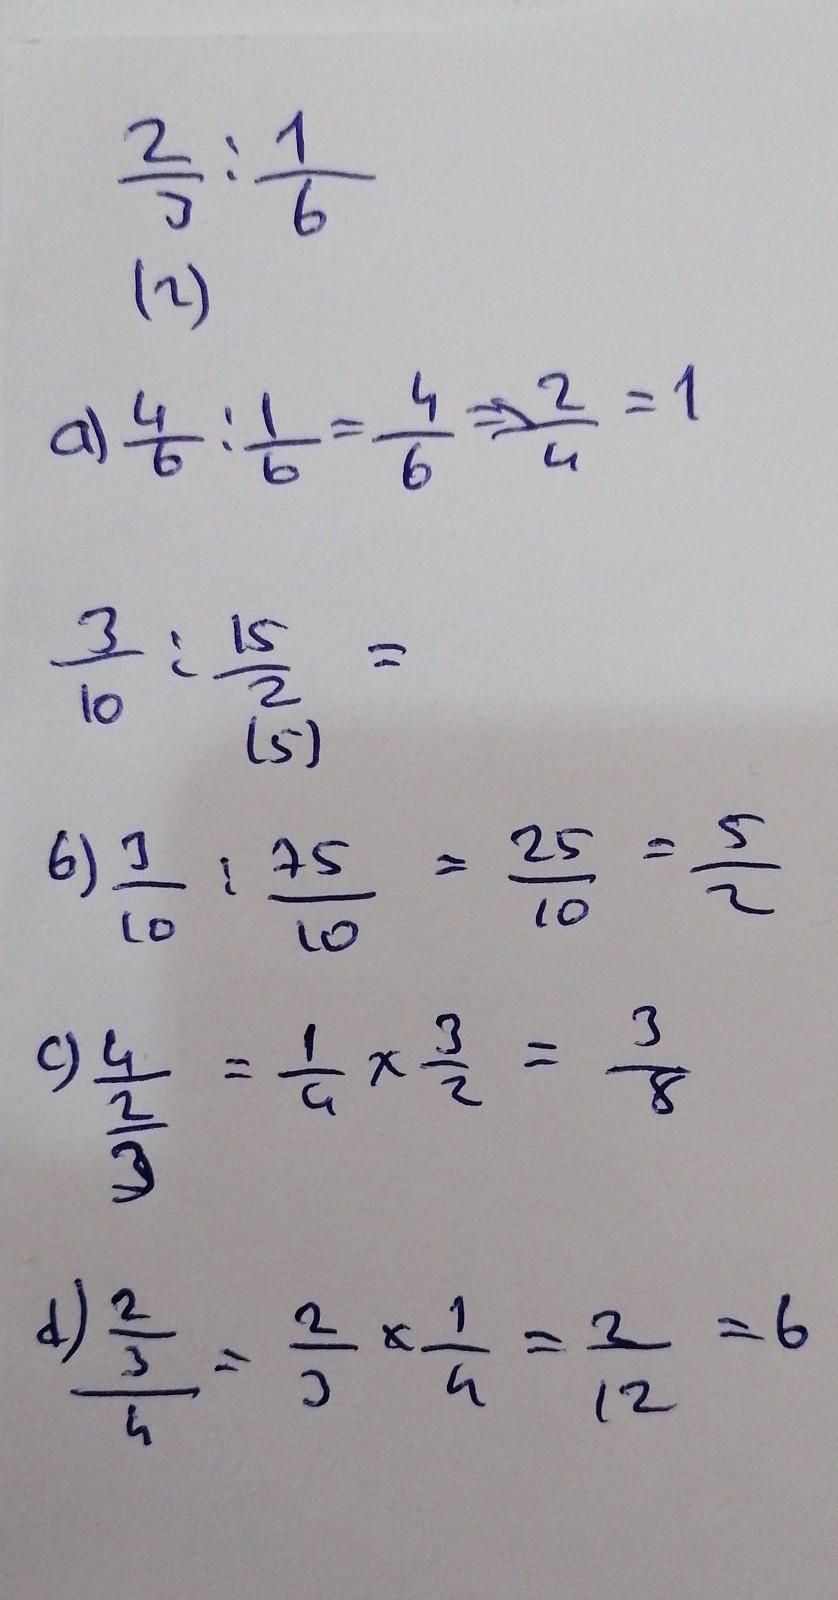 2/3 : 1/6
(2)
a) 4/6 : 1/6 = 4/6 = 2/4 = 1
3/10 : 15/2 =
(5)
b) 3/10 : 75/10 = 25/10 = 5/2
c) 4/(2/3) = 1/4 × 3/2 = 3/8
d) (2/3)/4 = 2/3 × 1/4 = 2/12 = 6